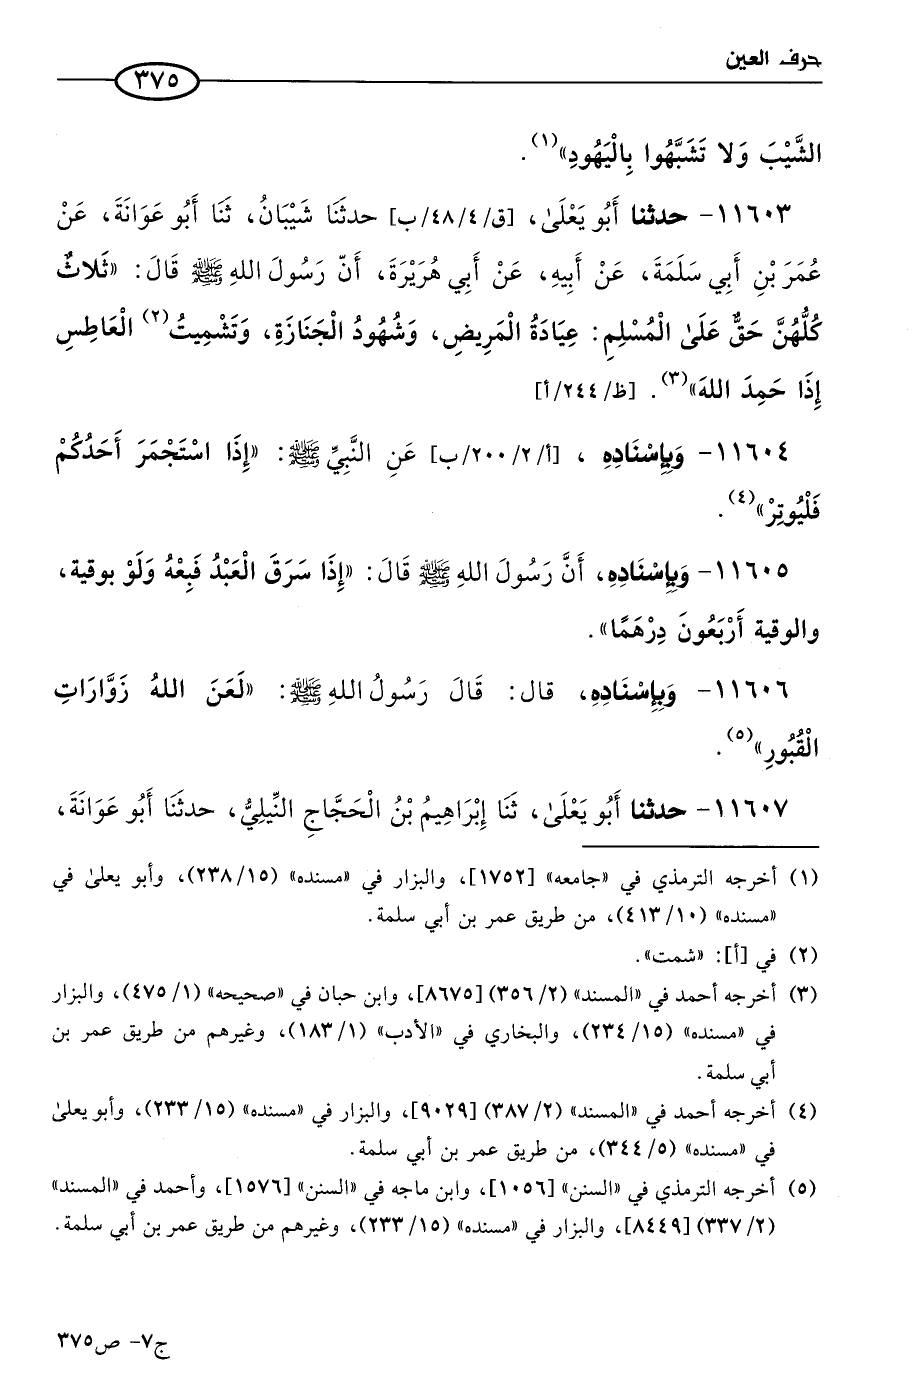 حرف العين
٣٧٥
الشَّيْبَ وَلا تَشَبَّهُوا بِالْيَهُودِ»(١).
١١٦٠٣- حدثنا أَبُو يَعْلَىٰ، [ق/٤٨/٤/ب] حدثَنَا شَيْبَانُ، ثَنَا أَبُو عَوَانَةَ، عَنْ
عُمَرَ بْنِ أَبِي سَلَمَةَ، عَنْ أَبِيهِ، عَنْ أَبِي هُرَيْرَةَ، أَنّ رَسُولَ اللهِ ﷺ قَالَ: «ثَلاثٌ
كُلُّهُنَّ حَقٌّ عَلَىٰ الْمُسْلِمِ: عِيَادَةُ الْمَرِيضِ، وَشُهُودُ الْجَنَازَةِ، وَتَشْمِيتُ(٢) الْعَاطِسِ
إِذَا حَمِدَ اللهَ»(٣). [ظ/٢٤٤/أ]
١١٦٠٤- وَبِإِسْنَادِهِ ، [أ/٢٠٠/٢/ب] عَنِ النَّبِيِّ ﷺ: «إِذَا اسْتَجْمَرَ أَحَدُكُمْ
فَلْيُوتِرْ»(٤).
١١٦٠٥- وَبِإِسْنَادِهِ، أَنَّ رَسُولَ اللهِ ﷺ قَالَ: «إِذَا سَرَقَ الْعَبْدُ فَبِعْهُ وَلَوْ بوقية،
والوقية أَرْبَعُونَ دِرْهَمًا».
١١٦٠٦- وَبِإِسْنَادِهِ، قال: قَالَ رَسُولُ اللهِ ﷺ: «لَعَنَ اللهُ زَوَّارَاتِ
الْقُبُورِ»(٥).
١١٦٠٧- حدثنا أَبُو يَعْلَىٰ، ثَنَا إِبْرَاهِيمُ بْنُ الْحَجَّاجِ النِّيلِيُّ، حدثَنَا أَبُو عَوَانَةَ،
(١) أخرجه الترمذي في «جامعه» [١٧٥٢]، والبزار في «مسنده» (٢٣٨/١٥)، وأبو يعلىٰ في
«مسنده» (٤١٣/١٠)، من طريق عمر بن أبي سلمة.
(٢) في [أ]: «شمت».
(٣) أخرجه أحمد في «المسند» (٣٥٦/٢) [٨٦٧٥]، وابن حبان في «صحيحه» (٤٧٥/١)، والبزار
في «مسنده» (٢٣٤/١٥)، والبخاري في «الأدب» (١٨٣/١)، وغيرهم من طريق عمر بن
أبي سلمة.
(٤) أخرجه أحمد في «المسند» (٣٨٧/٢) [٩٠٢٩]، والبزار في «مسنده» (٢٣٣/١٥)، وأبو يعلىٰ
في «مسنده» (٣٤٤/٥)، من طريق عمر بن أبي سلمة.
(٥) أخرجه الترمذي في «السنن» [١٠٥٦]، وابن ماجه في «السنن» [١٥٧٦]، وأحمد في «المسند»
(٣٣٧/٢) [٨٤٤٩]، والبزار في «مسنده» (٢٣٣/١٥)، وغيرهم من طريق عمر بن أبي سلمة.
ج٧- ص٣٧٥